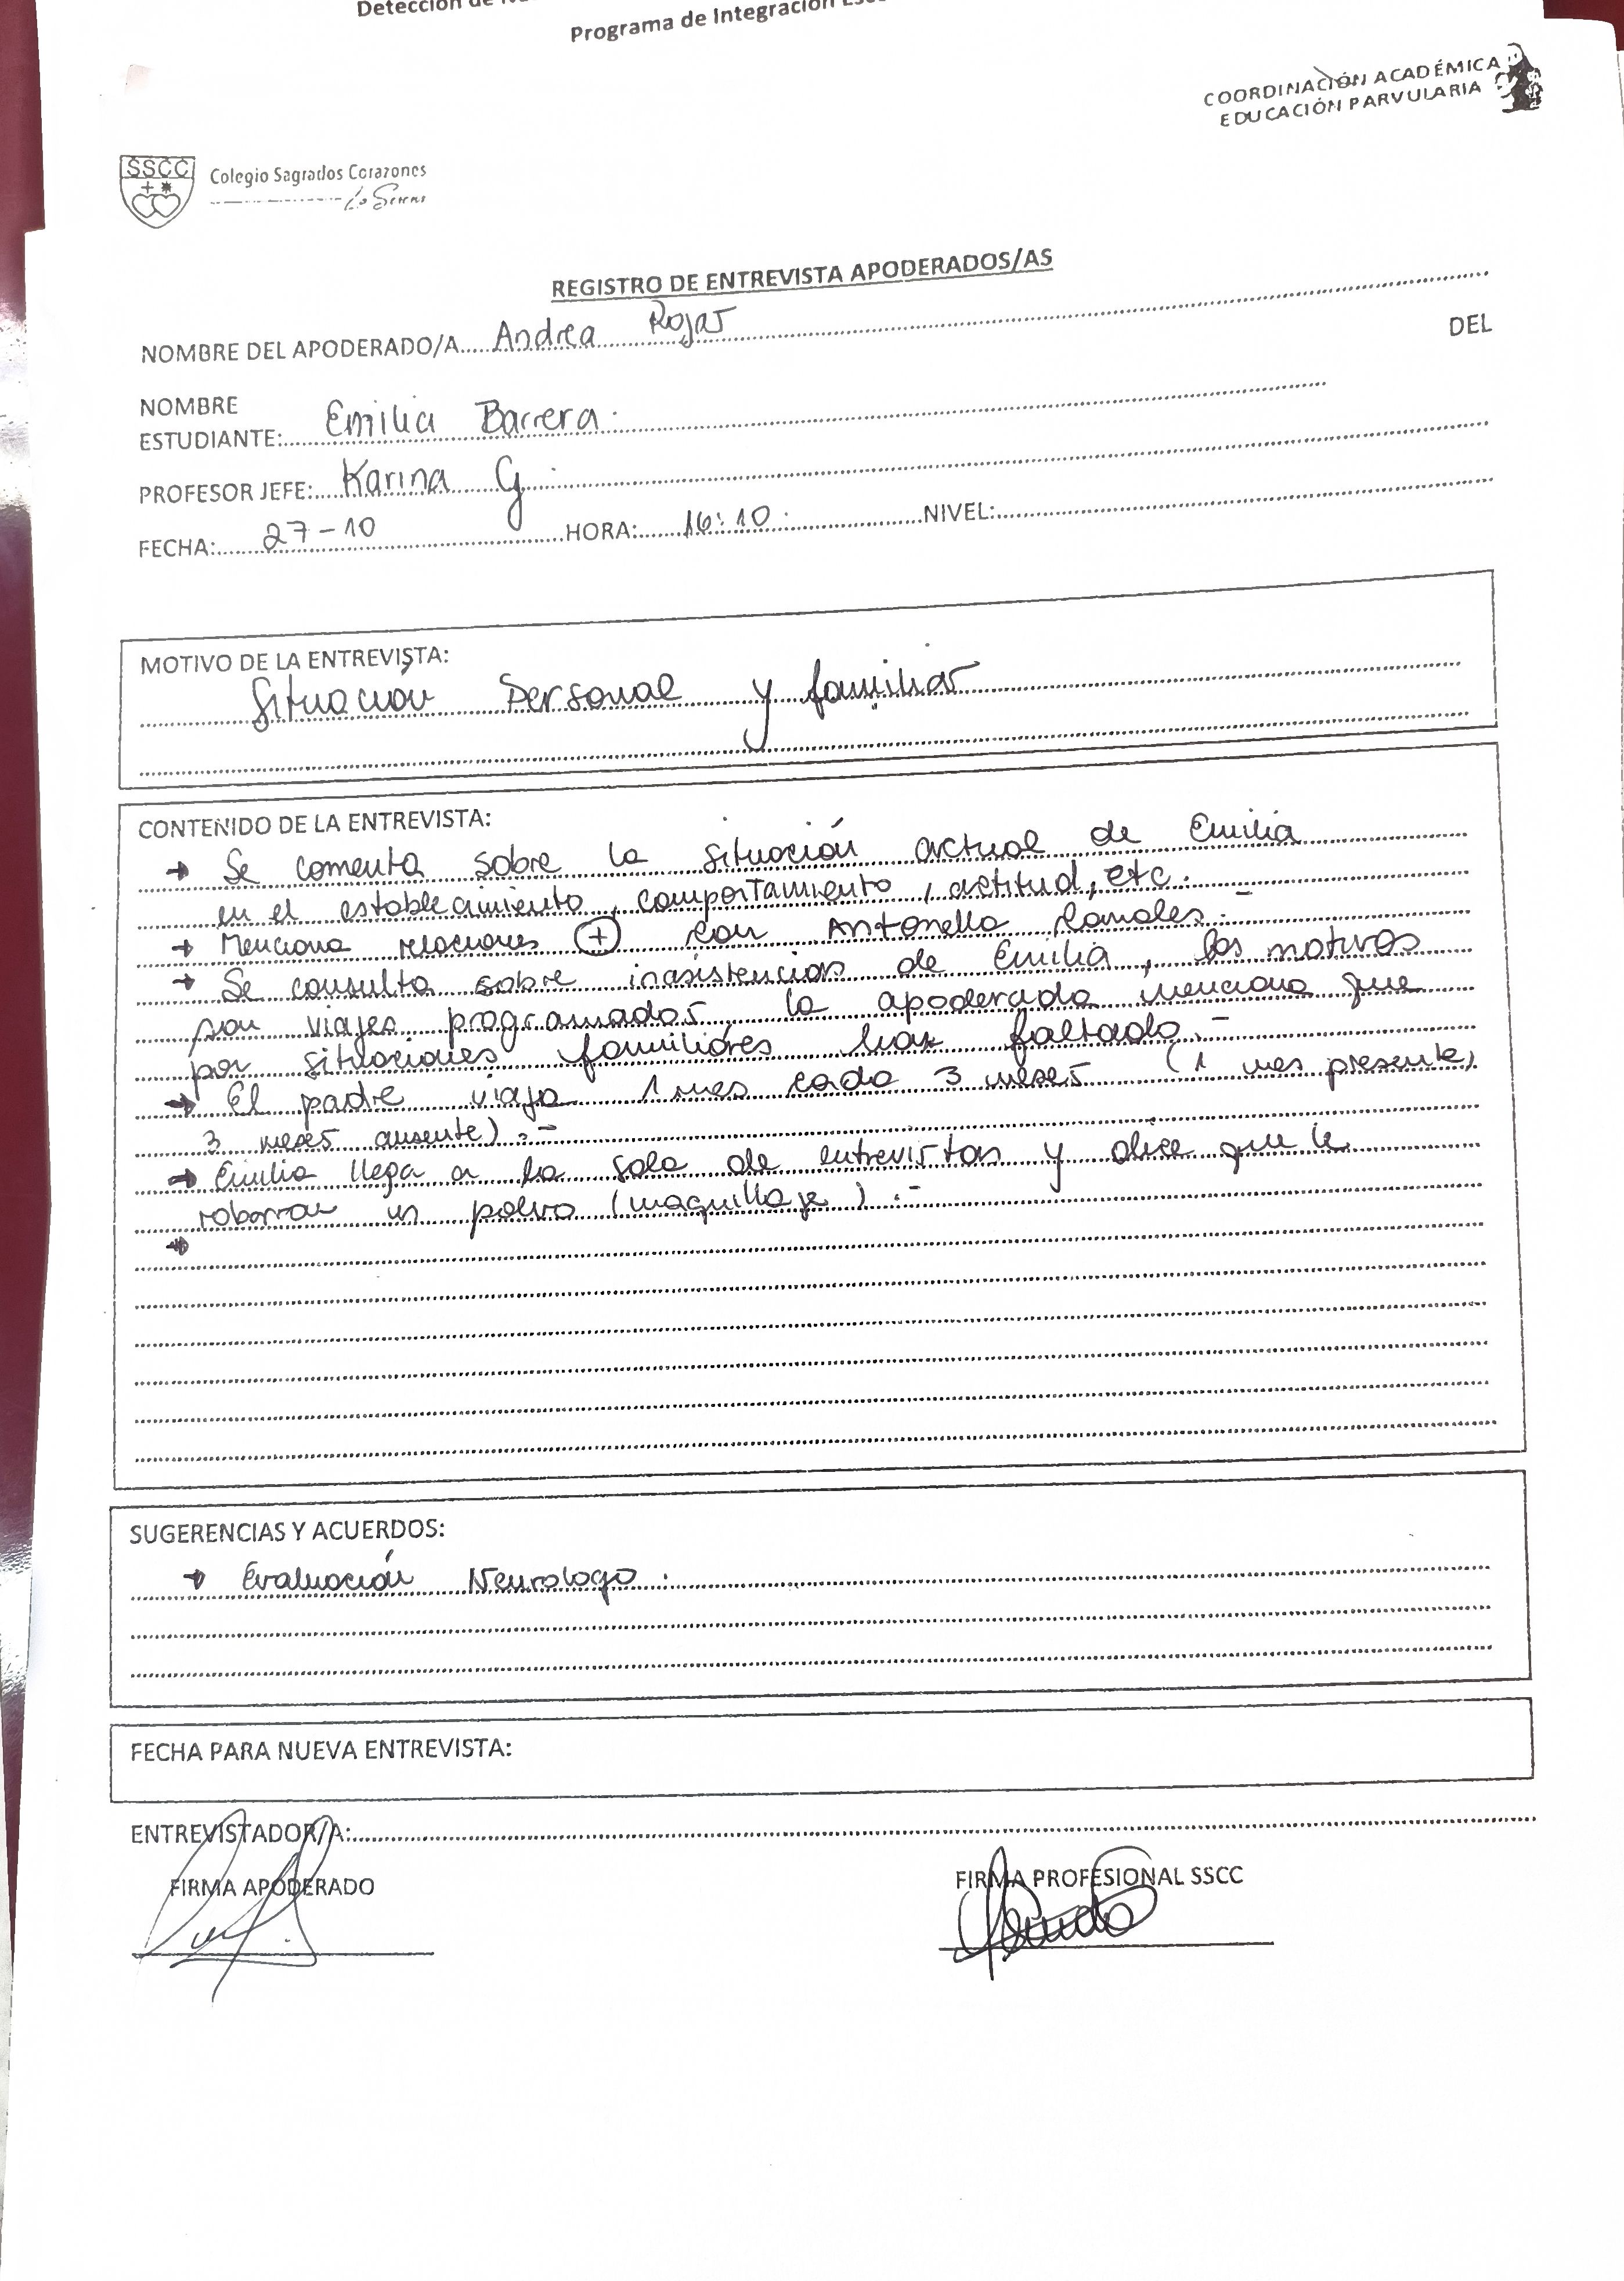 Detección de
Programa de Integración
COORDINACIÓN ACADÉMICA
EDUCACIÓN PARVULARIA
SSCC
Colegio Sagrados Corazones
La Serena
REGISTRO DE ENTREVISTA APODERADOS/AS
NOMBRE DEL APODERADO/A Andrea Rojas
DEL
NOMBRE
ESTUDIANTE: Emilia Barrera.
PROFESOR JEFE: Karina G.
FECHA: 27-10 HORA: 16:10. NIVEL:
MOTIVO DE LA ENTREVISTA:
Situación Personal y familiar
CONTENIDO DE LA ENTREVISTA:
→ Se comenta sobre la situación actual de Emilia
en el establecimiento, comportamiento, actitud, etc.
→ Menciona relaciones (+) con Antonella .-
→ Se consulta sobre inasistencias de Emilia, los motivos
son viajes programados la apoderada menciona que
por situaciones familiares han faltado.-
→ El padre viaja 1 mes cada 3 meses (1 mes presente,
3 meses ausente).-
→ Emilia llega a la sala de entrevistas y dice que le
robaron un polvo (maquillaje).-
→
SUGERENCIAS Y ACUERDOS:
→ Evaluación Neurologo.
FECHA PARA NUEVA ENTREVISTA:
ENTREVISTADOR/A:
FIRMA APODERADO
FIRMA PROFESIONAL SSCC